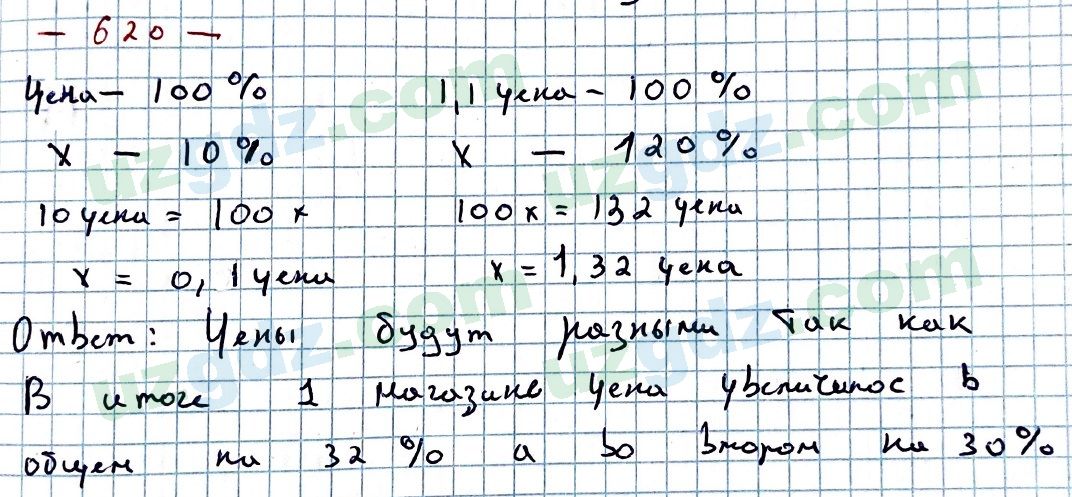 - 620 -
Цена - 100 % 1,1 цена - 100 %
х - 10 % х - 120 %
10 цена = 100 х 100 х = 132 цена
х = 0,1 цена х = 1,32 цена
Ответ: Цены будут разными так как
В итоге 1 магазине цена увеличилос в
общем на 32 % а во втором на 30 %
uzgdz.com
uzgdz.com
uzgdz.com
uzgdz.com